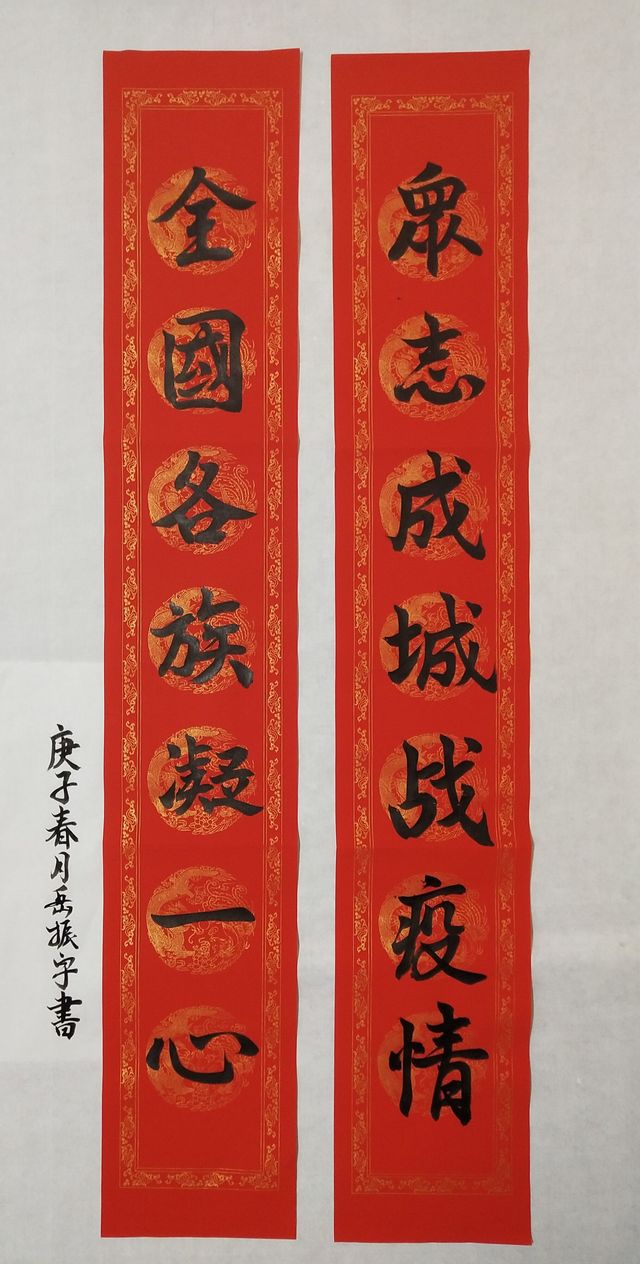 眾志成城战疫情
全國各族凝一心
庚子春月岳振宇書